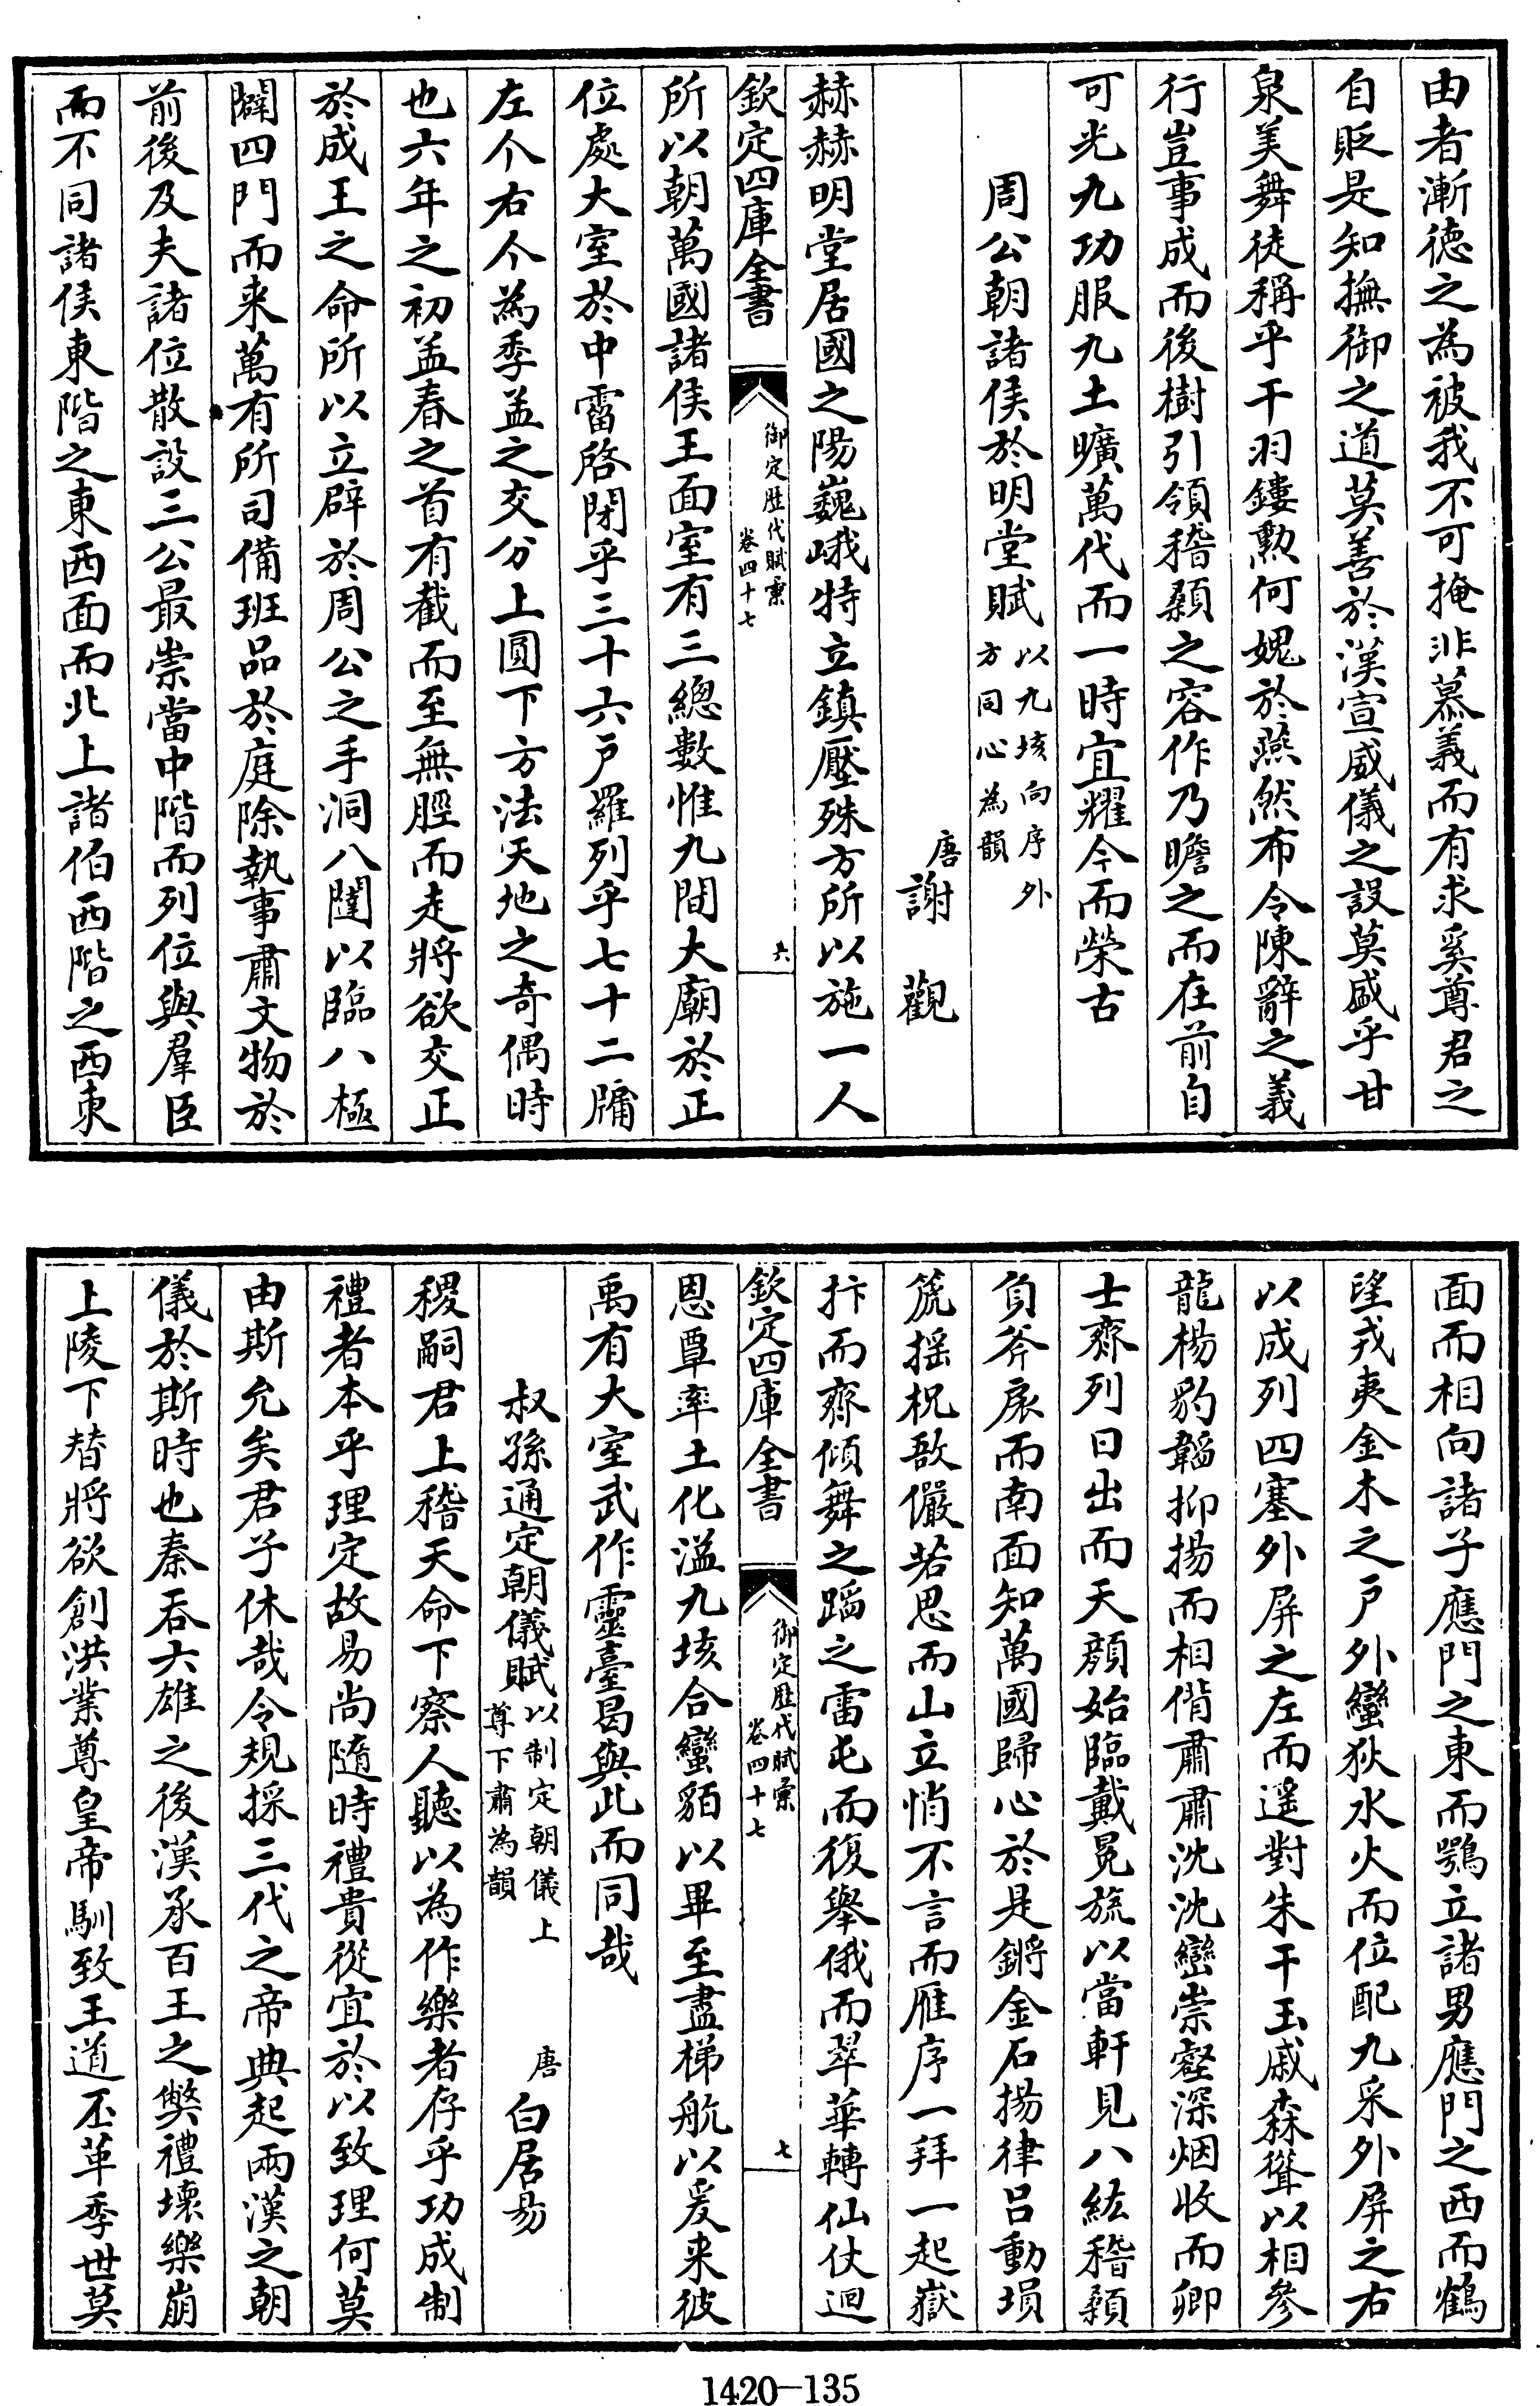 由者漸德之為被我不可掩非慕義而有求奚尊君之
自貶是知撫御之道莫善於漢宣威儀之設莫盛乎甘
泉美舞徒稱乎干羽鏤勲何媿於燕然布令陳辭之義
行豈事成而後樹引領稽顙之容作乃瞻之而在前自
可光九功服九土曠萬代而一時宜耀今而榮古
周公朝諸侯於明堂賦以九垓向序外
方同心為韻
唐謝觀
赫赫明堂居國之陽巍峨特立鎮壓殊方所以施一人
欽定四庫全書
御定歷代賦彙
卷四十七
六
所以朝萬國諸侯王面室有三總數惟九間大廟於正
位處大室於中霤啓閉乎三十六户羅列乎七十二牖
左个右个為季孟之交分上圓下方法天地之奇偶時
也六年之初孟春之首有截而至無脛而走將欲交正
於成王之命所以立辟於周公之手洞八闥以臨八極
闢四門而来萬有所司備班品於庭除執事肅文物於
前後及夫諸位散設三公最崇當中階而列位與羣臣
而不同諸侯東階之東西面而北上諸伯西階之西東
面而相向諸子應門之東而鶚立諸男應門之西而鶴
望戎夷金木之户外蠻狄水火而位配九采外屏之右
以成列四塞外屏之左而遥對朱干玉戚森聳以相參
龍楊豹韜抑揚而相偕肅肅沈沈巒崇壑深烟收而卿
士齊列日出而天顔始臨戴冕旒以當軒見八紘稽顙
負斧扆而南面知萬國歸心於是鏘金石揚律呂動塤
箎揺柷敔儼若思而山立悄不言而雁序一拜一起嶽
抃而齊傾舞之蹈之雷屯而復舉俄而翠華轉仙仗迴
欽定四庫全書
御定歷代賦彙
卷四十七
七
恩覃率土化溢九垓合蠻貊以畢至盡梯航以爰来彼
禹有大室武作靈臺曷與此而同哉
叔孫通定朝儀賦以制定朝儀上
尊下肅為韻
唐白居易
稷嗣君上稽天命下察人聽以為作樂者存乎功成制
禮者本乎理定故易尚隨時禮貴從宜於以致理何莫
由斯允矣君子休哉令規採三代之帝典起兩漢之朝
儀於斯時也秦吞六雄之後漢承百王之弊禮壞樂崩
上陵下替將欲創洪業尊皇帝馴致王道丕革季世莫
1420—135